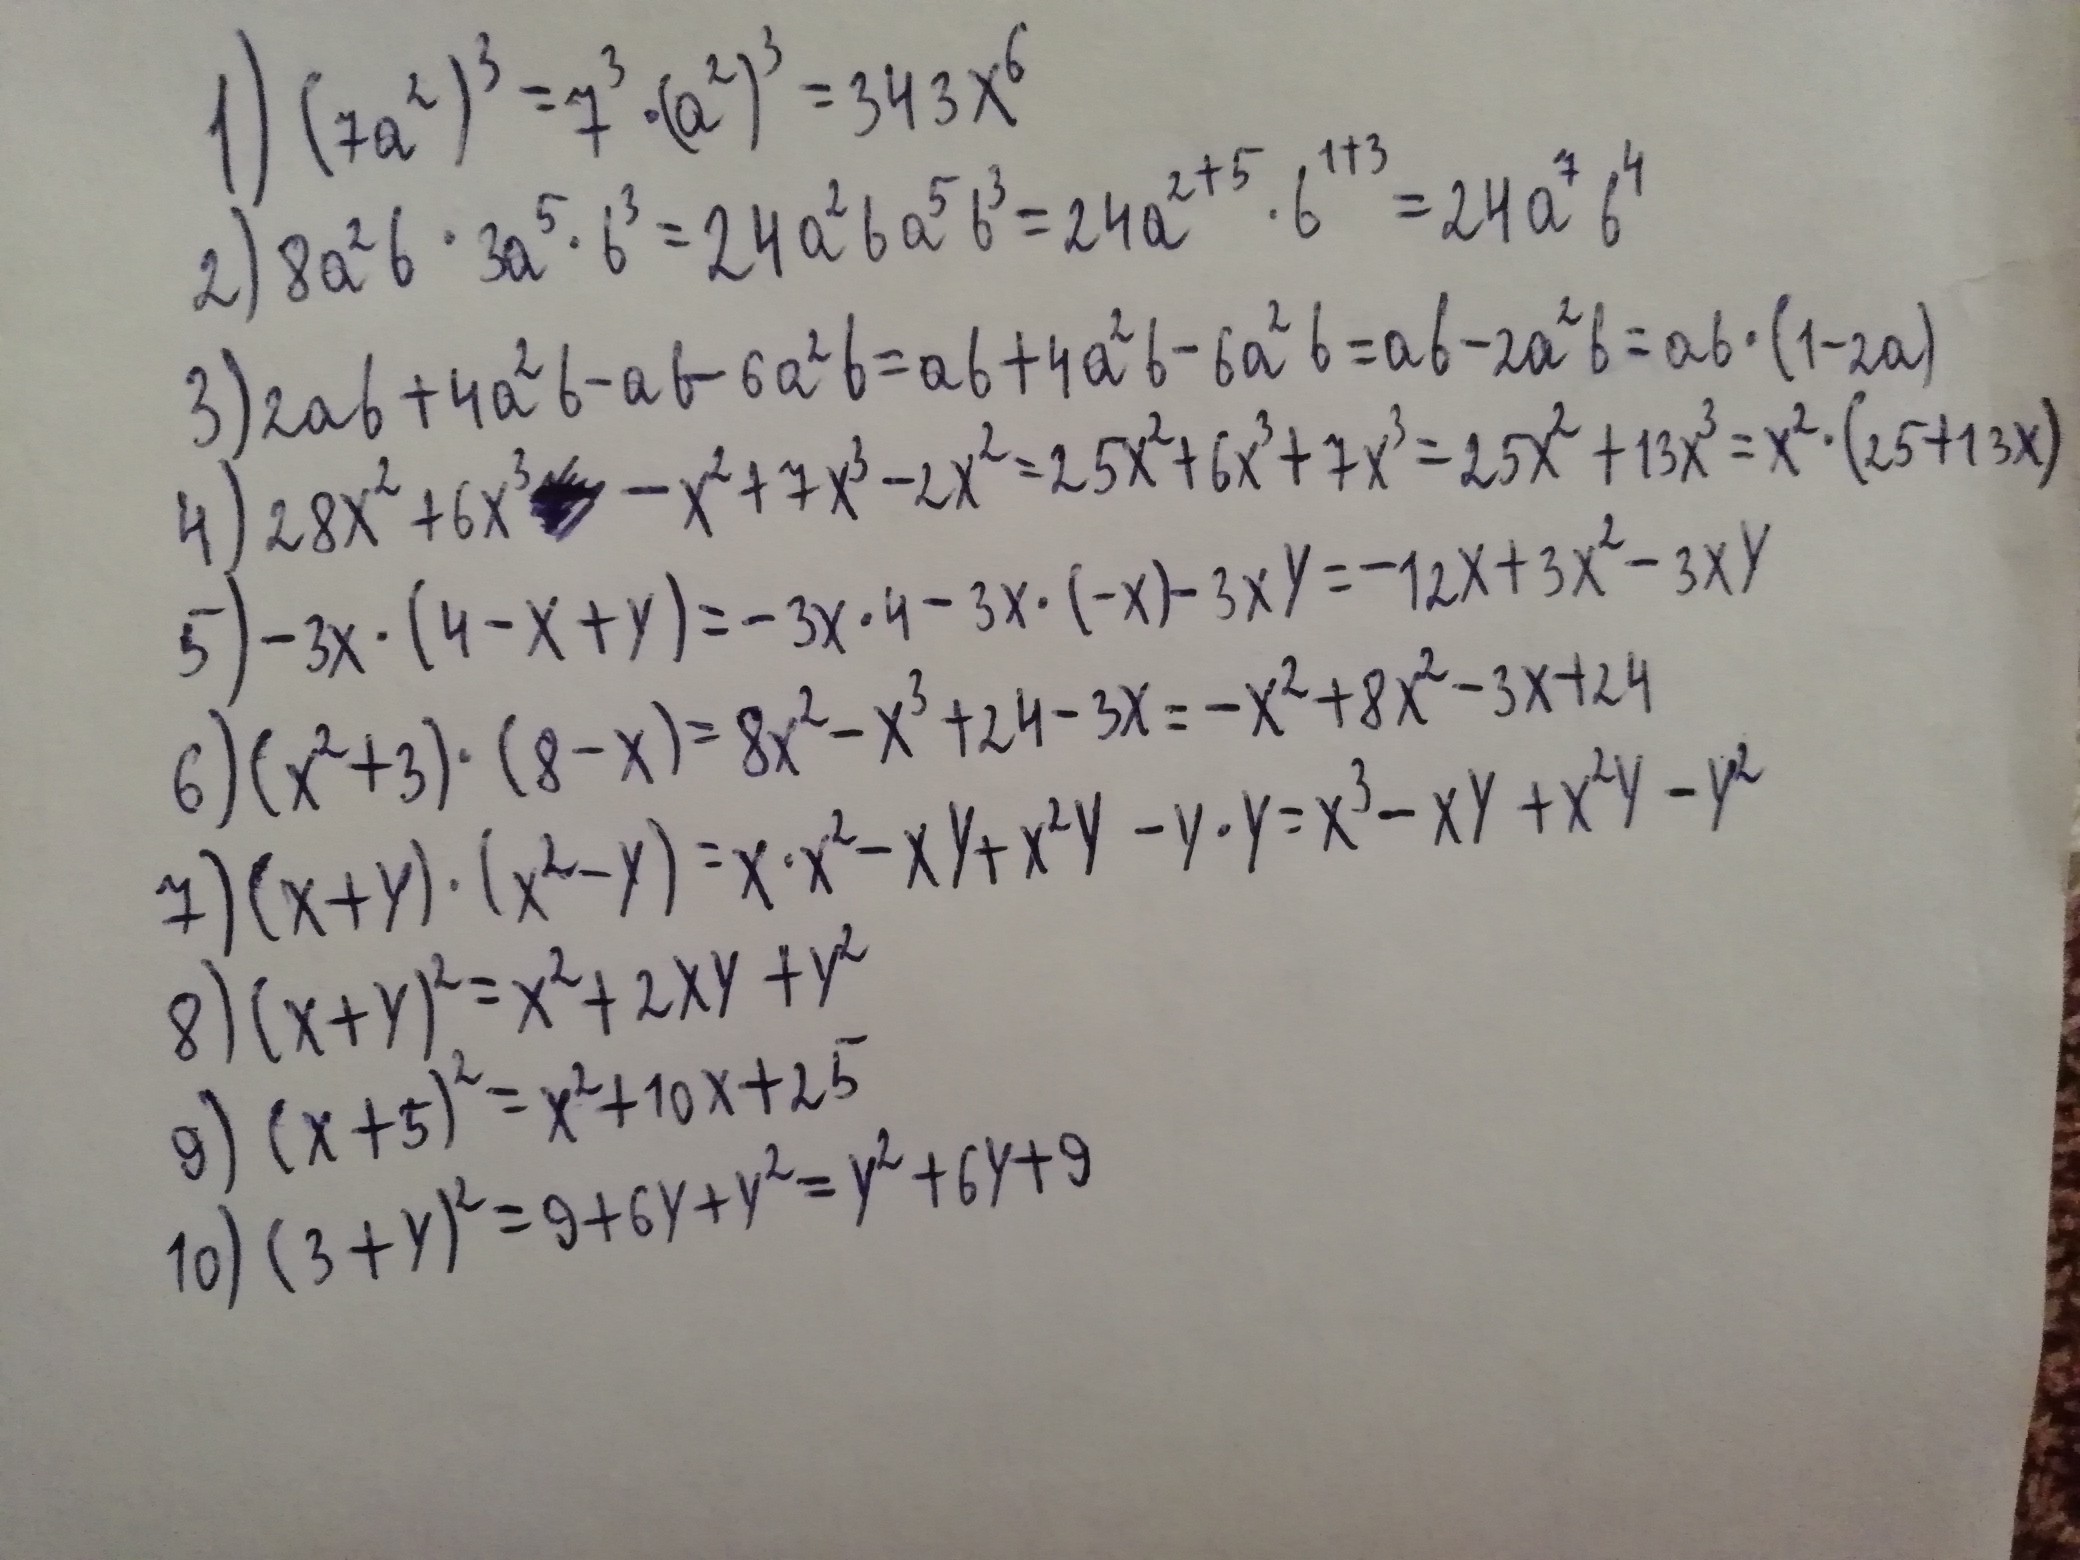 1) (7a²)³ = 7³ · (a²)³ = 343x⁶
2) 8a²b · 3a⁵ · b³ = 24a²ba⁵b³ = 24a²⁺⁵ · b¹⁺³ = 24a⁷b⁴
3) 2ab + 4a²b - ab - 6a²b = ab + 4a²b - 6a²b = ab - 2a²b = ab · (1 - 2a)
4) 28x² + 6x³ - x² + 7x³ - 2x² = 25x² + 6x³ + 7x³ = 25x² + 13x³ = x² · (25 + 13x)
5) -3x · (4 - x + y) = -3x · 4 - 3x · (-x) - 3xy = -12x + 3x² - 3xy
6) (x² + 3) · (8 - x) = 8x² - x³ + 24 - 3x = -x² + 8x² - 3x + 24
7) (x + y) · (x² - y) = x · x² - xy + x²y - y · y = x³ - xy + x²y - y²
8) (x + y)² = x² + 2xy + y²
9) (x + 5)² = x² + 10x + 25
10) (3 + y)² = 9 + 6y + y² = y² + 6y + 9